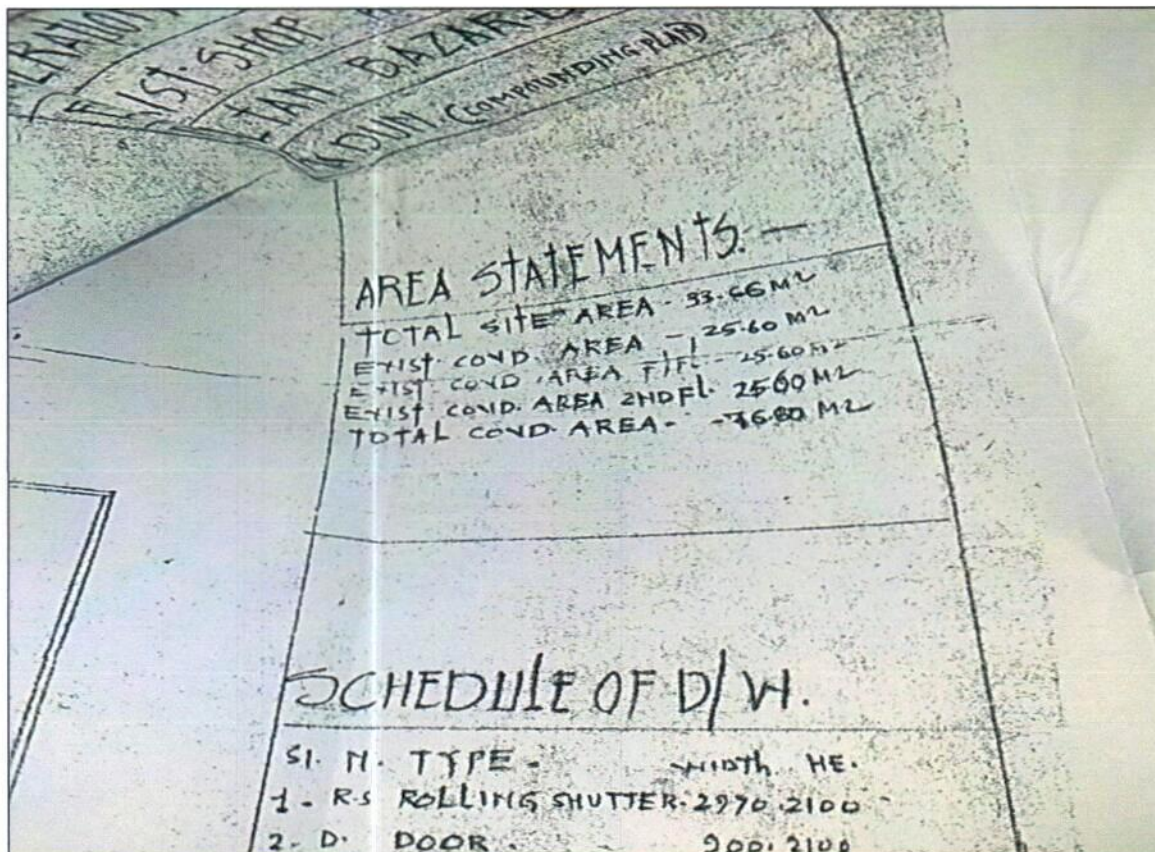 EXIST. SHOP
BAZAR
DUN (COMPOUNDING PLAN)
AREA STATEMENTS. —
TOTAL SITE AREA - 33.66 M2
EXIST. COVD. AREA - 25.60 M2
EXIST. COVD. AREA F/FL - 25.60 M2
EXIST. COVD. AREA 2ND FL. 25.60 M2
TOTAL COVD. AREA - - 76.80 M2
SCHEDULE OF D/W.
Sl. N. TYPE - WIDTH HE.
1 - R.S ROLLING SHUTTER. 2970. 2100
2 - D. DOOR. 900. 2100